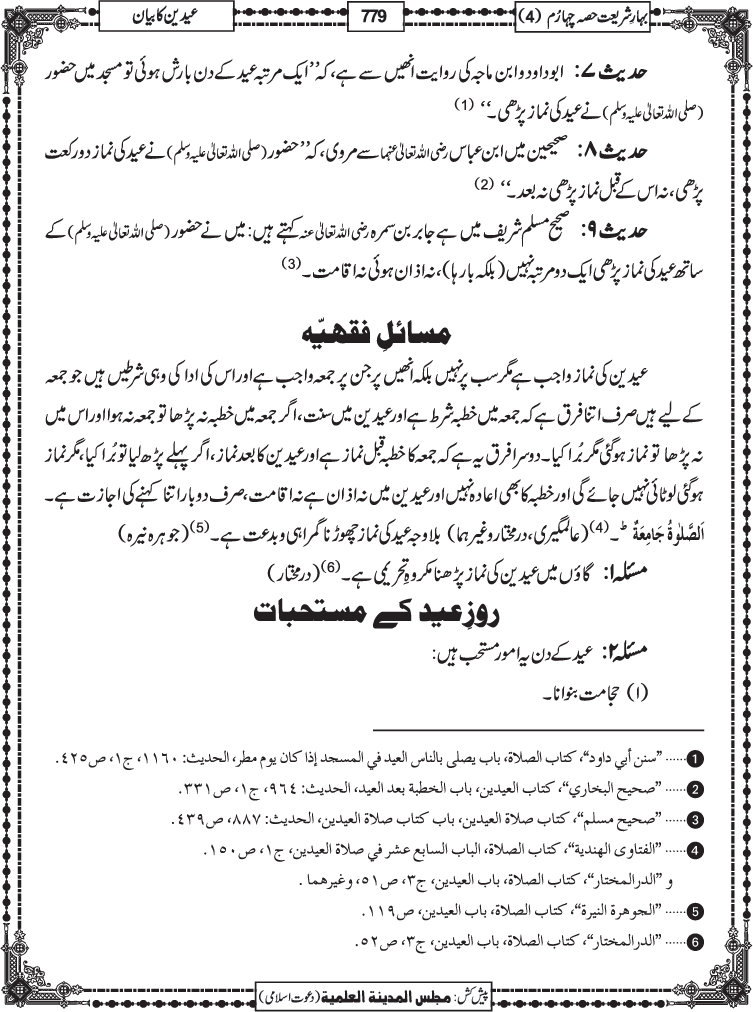 بہارِشریعت حصہ چہارم (4)
779
عیدین کا بیان
حدیث ۷: ابوداود وابن ماجہ کی روایت انھیں سے ہے، کہ ’’ایک مرتبہ عید کے دن بارش ہوئی تو مسجد میں حضور
(صلی اللہ تعالیٰ علیہ وسلم) نے عید کی نماز پڑھی۔‘‘ (1)
حدیث ۸: صحیحین میں ابن عباس رضی اللہ تعالیٰ عنہما سے مروی، کہ ’’حضور (صلی اللہ تعالیٰ علیہ وسلم) نے عید کی نماز دو رکعت
پڑھی، نہ اس کے قبل نماز پڑھی نہ بعد۔‘‘ (2)
حدیث ۹: صحیح مسلم شریف میں ہے جابر بن سمرہ رضی اللہ تعالیٰ عنہ کہتے ہیں: میں نے حضور (صلی اللہ تعالیٰ علیہ وسلم) کے
ساتھ عید کی نماز پڑھی ایک دو مرتبہ نہیں (بلکہ بارہا)، نہ اذان ہوئی نہ اقامت۔ (3)
مسائلِ فقھیّہ
عیدین کی نماز واجب ہے مگر سب پر نہیں بلکہ انھیں پر جن پر جمعہ واجب ہے اور اس کی ادا کی وہی شرطیں ہیں جو جمعہ
کے لیے ہیں صرف اتنا فرق ہے کہ جمعہ میں خطبہ شرط ہے اور عیدین میں سنت، اگر جمعہ میں خطبہ نہ پڑھا تو جمعہ نہ ہوا اور اس میں
نہ پڑھا تو نماز ہوگئی مگر بُرا کیا۔ دوسرا فرق یہ ہے کہ جمعہ کا خطبہ قبل نماز ہے اور عیدین کا بعد نماز، اگر پہلے پڑھ لیا تو بُرا کیا، مگر نماز
ہوگئی لوٹائی نہیں جائے گی اور خطبہ کا بھی اعادہ نہیں اور عیدین میں نہ اذان ہے نہ اقامت، صرف دوبار اتنا کہنے کی اجازت ہے۔
اَلصَّلٰوۃُ جَامِعَۃٌ ؕ۔ (4) (عالمگیری، درمختار وغیرہما) بلاوجہ عید کی نماز چھوڑنا گمراہی و بدعت ہے۔ (5) (جوہرہ نیرہ)
مسئلہ ۱: گاؤں میں عیدین کی نماز پڑھنا مکروہِ تحریمی ہے۔ (6) (درمختار)
روزِ عید کے مستحبات
مسئلہ ۲: عید کے دن یہ امور مستحب ہیں:
(۱) حجامت بنوانا۔
1 ...... ”سنن أبي داود“، كتاب الصلاة، باب يصلي بالناس العيد في المسجد إذا كان يوم مطر، الحديث: ١١٦٠، ج١، ص٤٢٥.
2 ...... ”صحيح البخاري“، كتاب العيدين، باب الخطبة بعد العيد، الحديث: ٩٦٤، ج١، ص٣٣١.
3 ...... ”صحيح مسلم“، كتاب صلاة العيدين، باب كتاب صلاة العيدين، الحديث: ٨٨٧، ص٤٣٩.
4 ...... ”الفتاوى الهندية“، كتاب الصلاة، الباب السابع عشر في صلاة العيدين، ج١، ص١٥٠.
و ”الدرالمختار“، كتاب الصلاة، باب العيدين، ج٣، ص٥١، وغيرهما .
5 ...... ”الجوهرة النيرة“، كتاب الصلاة، باب العيدين، ص١١٩.
6 ...... ”الدرالمختار“، كتاب الصلاة، باب العيدين، ج٣، ص٥٢.
پیش کش: مجلس المدینة العلمیة (دعوت اسلامی)